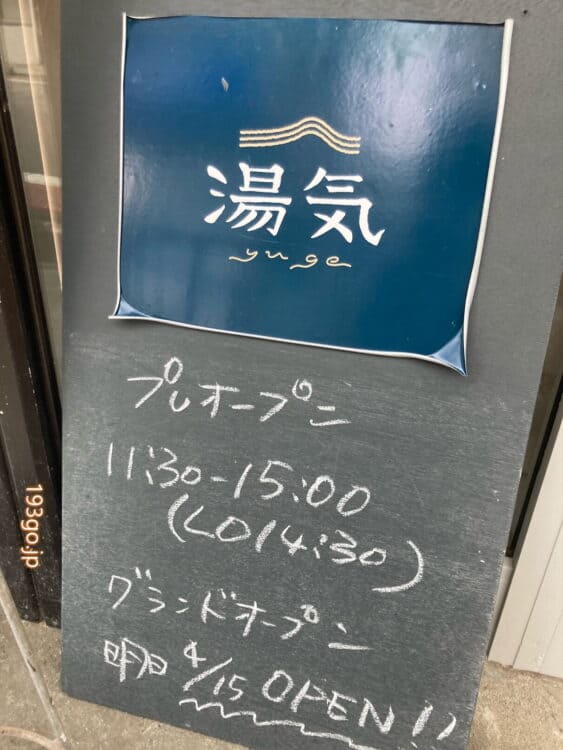 湯気
yuge
プレオープン
11:30-15:00
(LO14:30)
グランドオープン
明日 4/15 OPEN!!
193go.jp